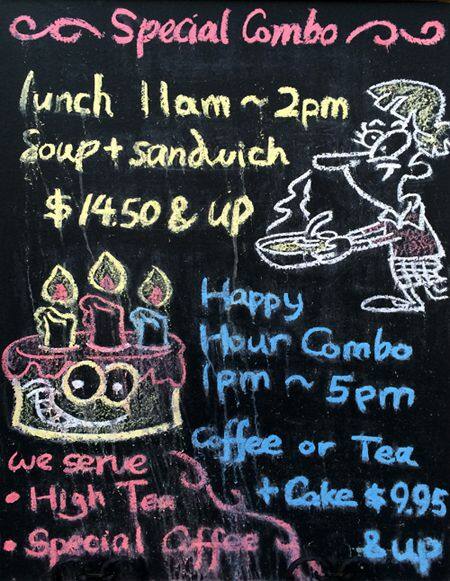 Special Combo
lunch 11am ~ 2pm
Soup + sandwich
$14.50 & up
Happy
Hour Combo
1pm ~ 5pm
Coffee or Tea
+ Cake $9.95
& up
we serve
• High Tea
• Special Coffee